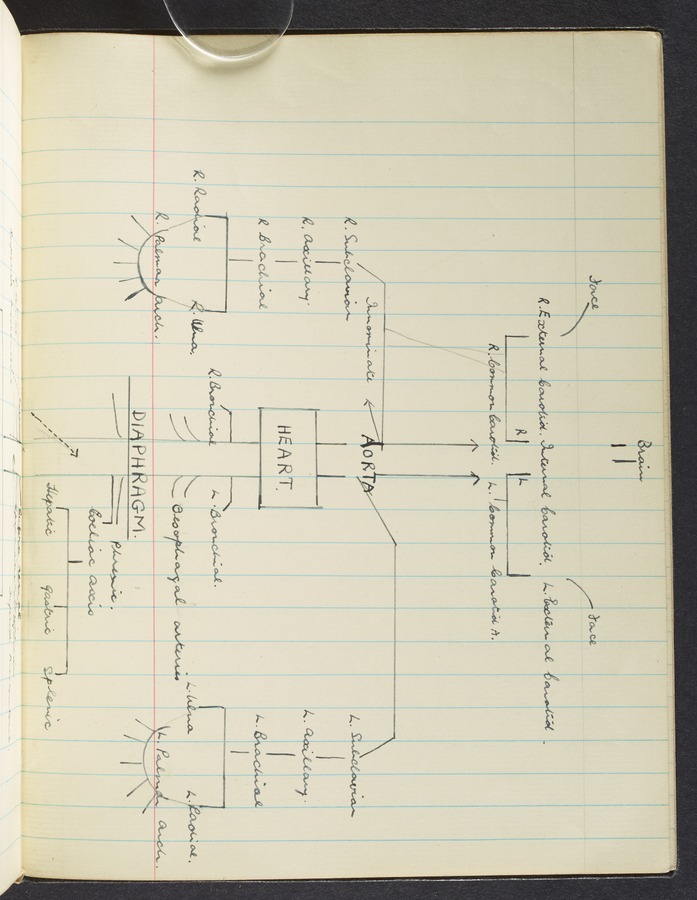 Brain
Face
Face
R. External Carotid. Internal Carotid. L. External Carotid.
R L
R. Common Carotid. L. Common Carotid A.
Innominate
AORTA
R. Subclavian
L. Subclavian
R. Axillary
L. Axillary.
HEART.
R Brachial
L. Brachial
R. Bronchial
L. Bronchial.
R. Radial
R. Ulna.
L. Ulna
L. Radial.
Oesophagal arteries
R. Palmar arch.
L. Palmar arch.
DIAPHRAGM.
Phrenic.
Coeliac axis
Hepatic Gastric Splenic